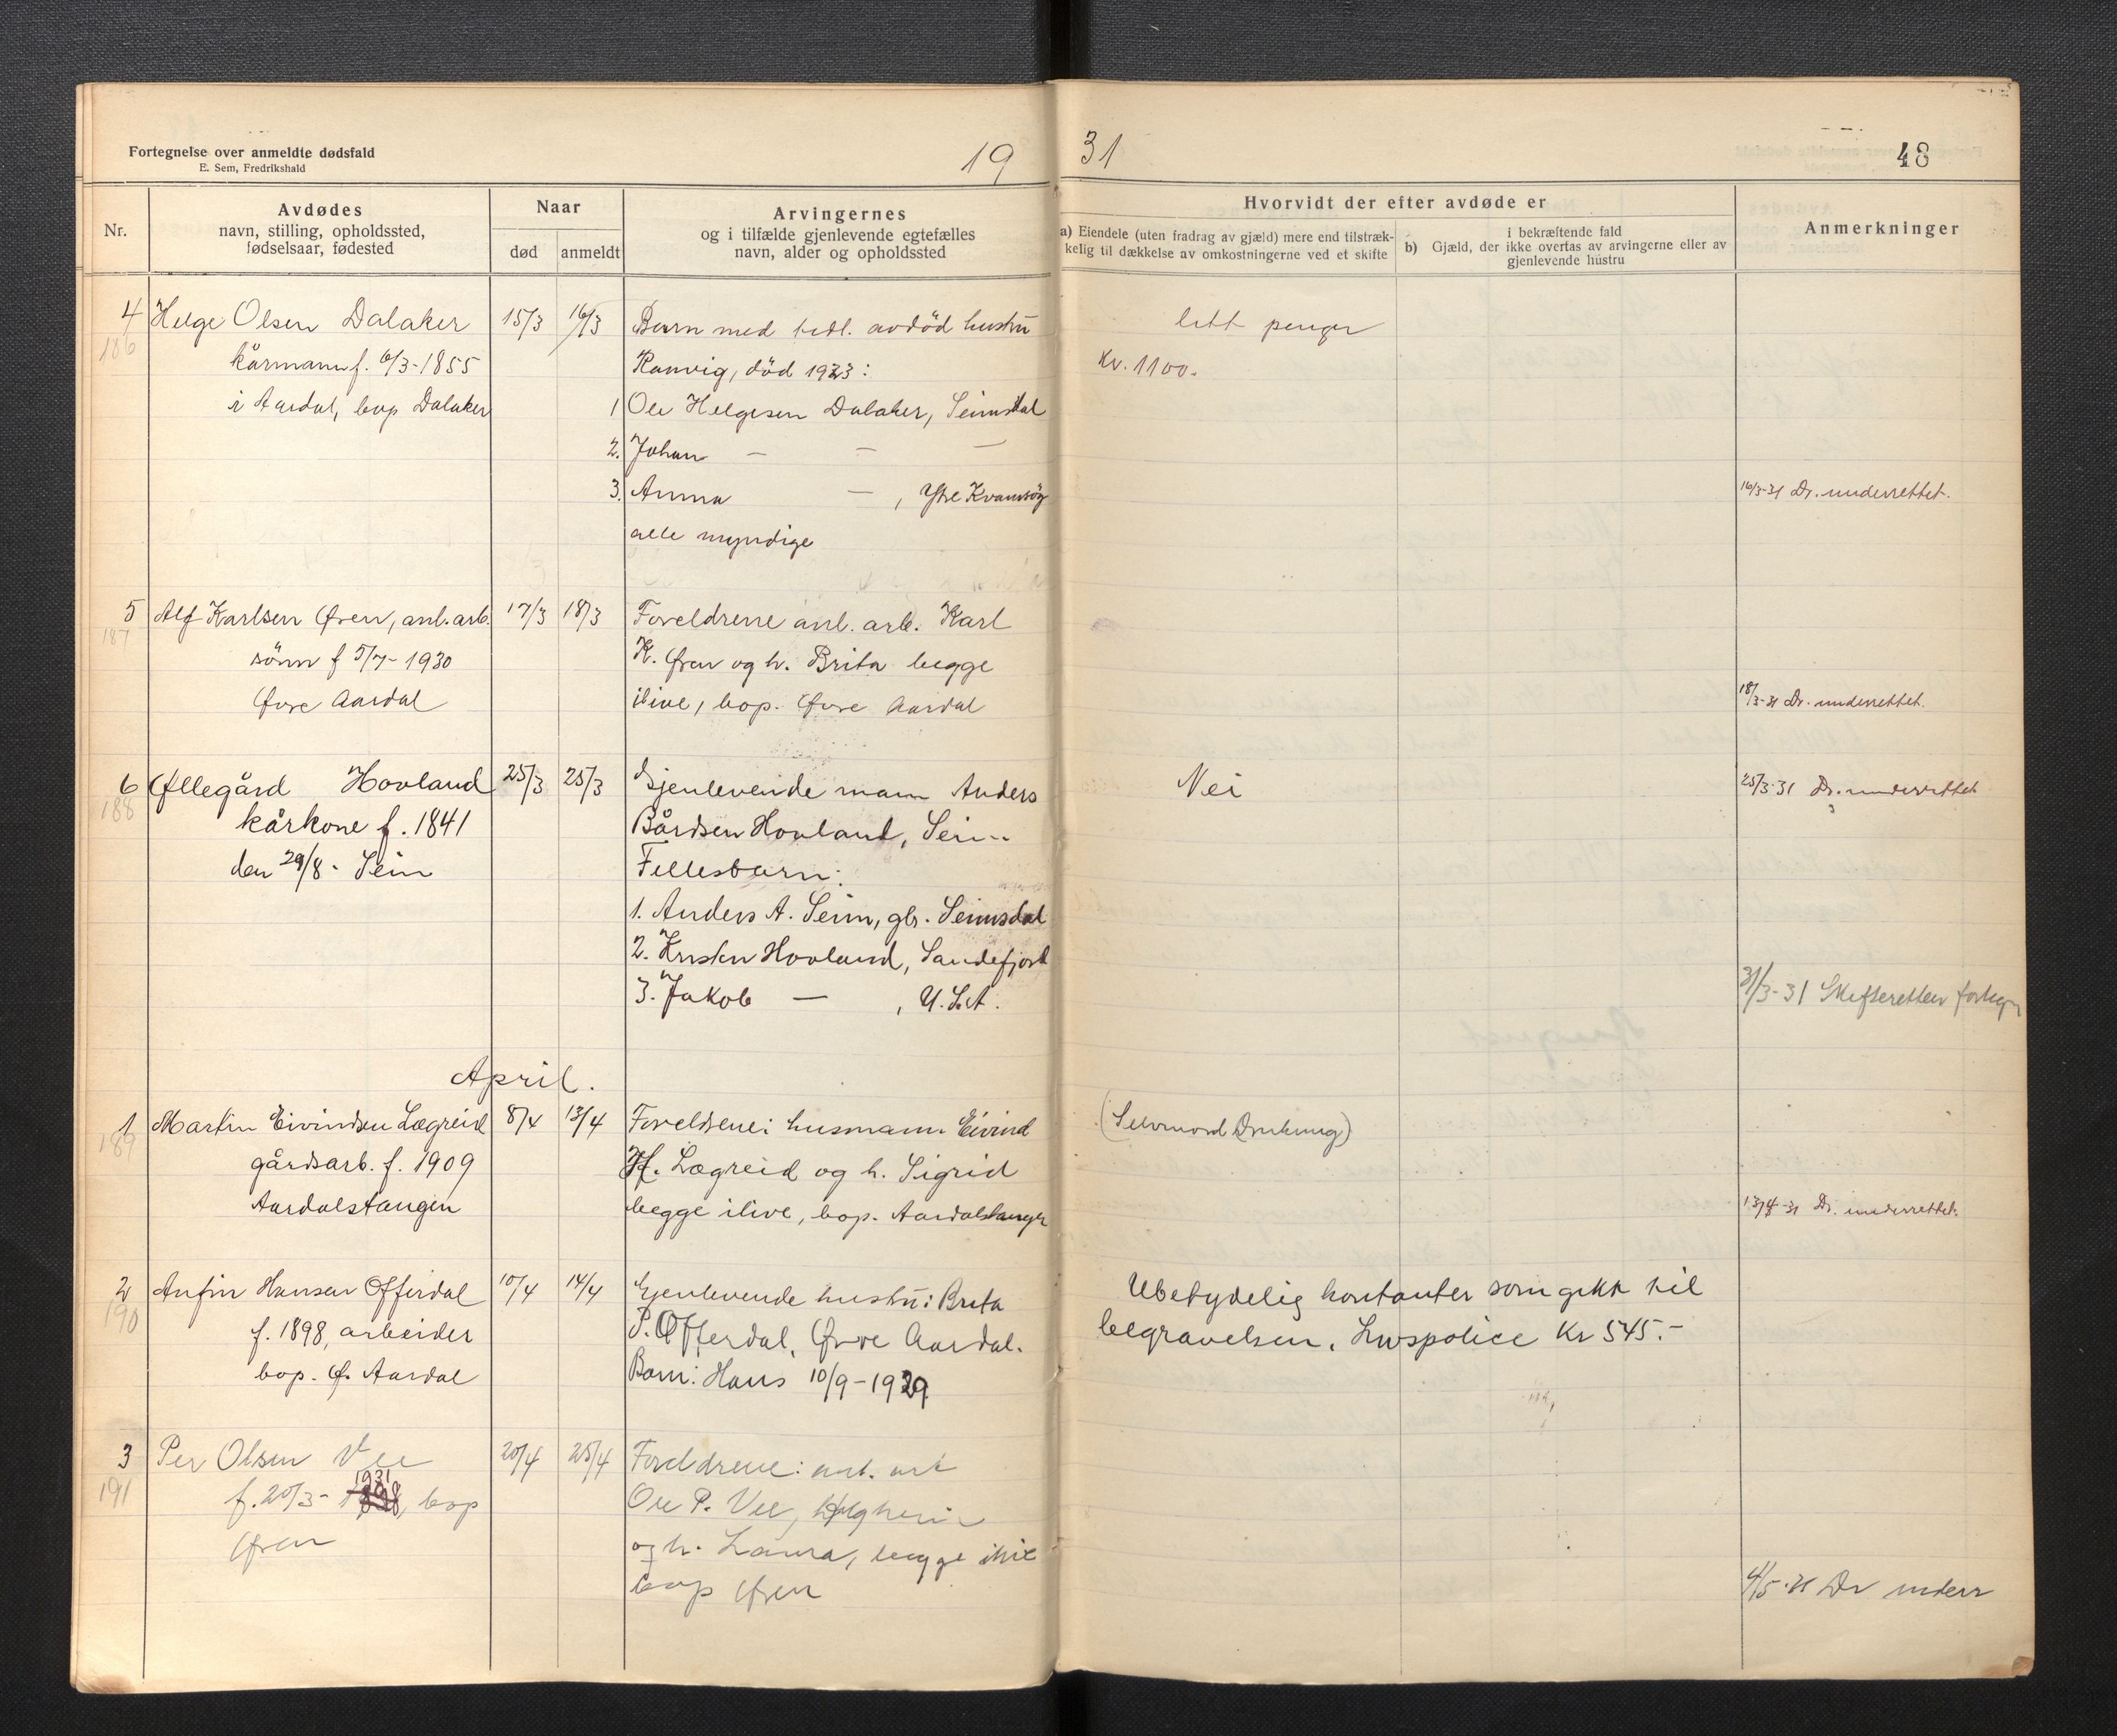 Fortegnelse over anmeldte dødsfald
E. Sem, Fredrikshald
19 31
48
Nr.
Avdødes
navn, stilling, opholdssted,
fødselsaar, fødested
Naar
død
anmeldt
Arvingernes
og i tilfælde gjenlevende egtefælles
navn, alder og opholdssted
Hvorvidt der efter avdøde er
a) Eiendele (uten fradrag av gjæld) mere end tilstræk-
kelig til dækkelse av omkostningerne ved et skifte
i bekræftende fald
b) Gjæld, der ikke overtas av arvingerne eller av
gjenlevende hustru
Anmerkninger
4 Helge Olsen Dalaker 15/3 16/3 Barn med tidl. avdöd hustru litt penger
186 kårmann f. 6/3-1855 Ranvig, död 1923: Kr. 1100.
i Aardal, bop Dalaker 1 Ole Helgesen Dalaker, Seimsdal
2. Johan — — —
3. Anna — , Ytre Kvamsöy 16/3-31 Dr. underrettet.
alle myndige
5 Alf Karlsen Øren, anl. arb. 17/3 18/3 Foreldrene anl. arb. Karl
187 sönn f 5/7-1930 K. Øren og h. Brita begge
Øvre Aardal ilive, bop. Øvre Aardal 18/3-31 Dr. underrettet.
6 Øllegård Hovland 25/3 25/3 Gjenlevende mann Anders Nei 25/3-31 Dr. underrettet
188 kårkone f. 1841 Bårdsen Hovland, Seim
den 29/8- Seim Fellesbarn:
1. Anders A. Seim, gbr. Seimsdal
2. Kristen Hovland, Sandefjord
3. Jakob — , U.S.A. 31/3-31 Skifteretten
April.
1 Martin Eivindsen Lægreid 8/4 13/4 Foreldrene: husmann Eivind (Selvmord Drukning)
189 gårdsarb. f. 1909 H. Lægreid og h. Sigrid
Aardalstangen begge ilive, bop. Aardalstangen 13/4-31 Dr. underrettet.
2 Anfin Hansen Offerdal 10/4 14/4 Gjenlevende hustru: Brita Ubetydelig kontanter som gikk til
190 f. 1898, arbeider P. Offerdal, Øvre Aardal. begravelsen. Livspolice Kr 545.-
bop. Ø. Aardal Barn: Hans 10/9-1929
3 Per Olsen Vee 20/4 25/4 Foreldrene: anl. arb
191 f. 20/3- 1931, bop Ole P. Vee,
Øren og h. Laura, begge ilive
bop Øren 4/5-31 Dr underr